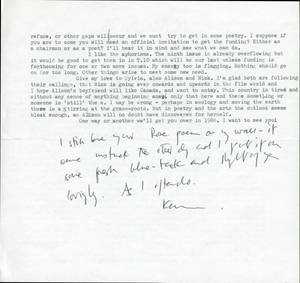 refuse, or other gaps will occur and we must try to get in some poetry. I suppose if
you are to come you will need an official invitation to get the funding? Either as
a chairman or as a poet? I'll bear it in mind and see what we can do.
I like the aphorisms. The ninth issue is already overflowing but it
would be good to get them in in T.10 which will be our last unless funding is
forthcoming for one or two more issues. My energy too is flagging. Nothing should go
on for too long. Other things arise to meet some new need.
Give my love to also Alison and Rick. I'm glad both are following
their calling. that Rick is going ever onwards and upwards in the film world and
I hope Alison's boyfriend will like Canada, and want to stay. This country is tired and
without any sense of anything beginning anew, only that here and there something or
someone is 'still' the x. I may be wrong - perhaps in ecology and saving the earth
there is a stirring at the grass-roots. But in poetry and the arts the outlook seems
bleak enough, as Alison will no doubt have discovered for herself.
One way or another we'll get you over in 1986. I want to see you!
I still have your Rose poem on my wall - it
came the other day and I put it on
some fresh blue-tack and
lovingly. As I